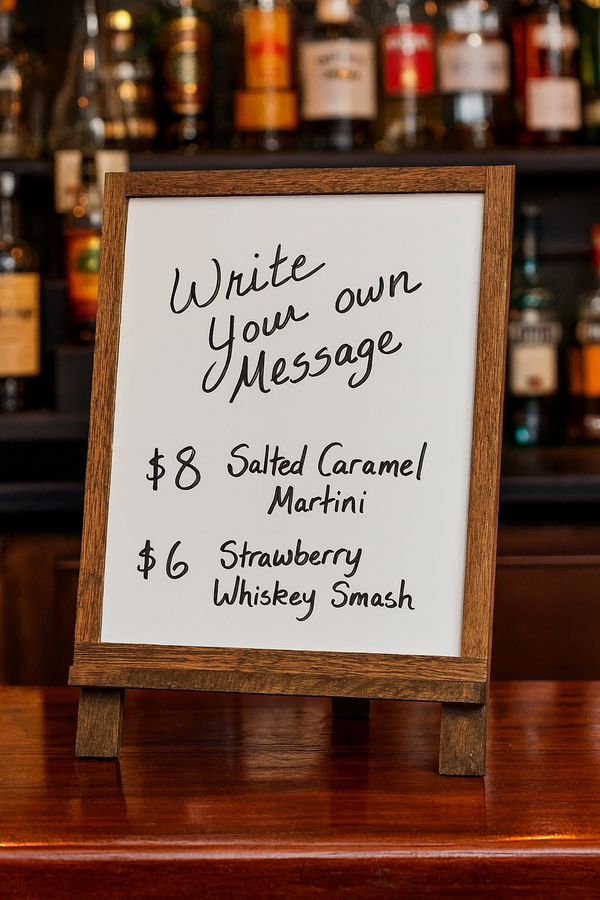 Write
Your own
Message
$8 Salted Caramel
Martini
$6 Strawberry
Whiskey Smash